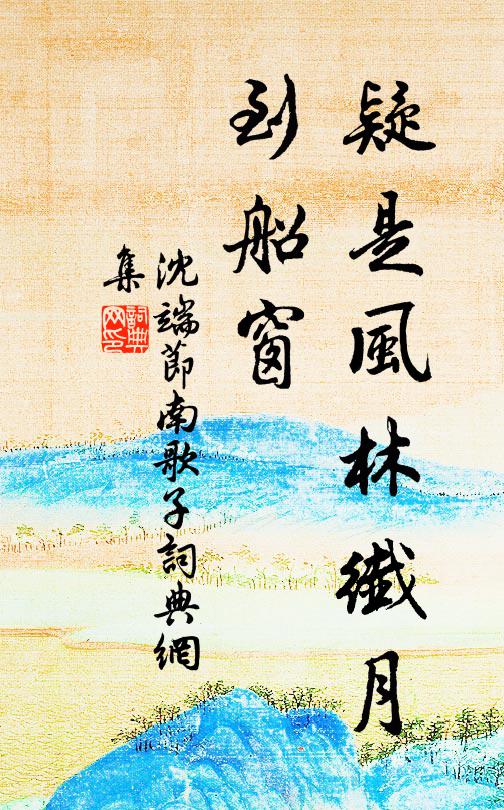 疑是風林纖月
到船窗
沈端節南歌子詞典網
集
詞典
网印